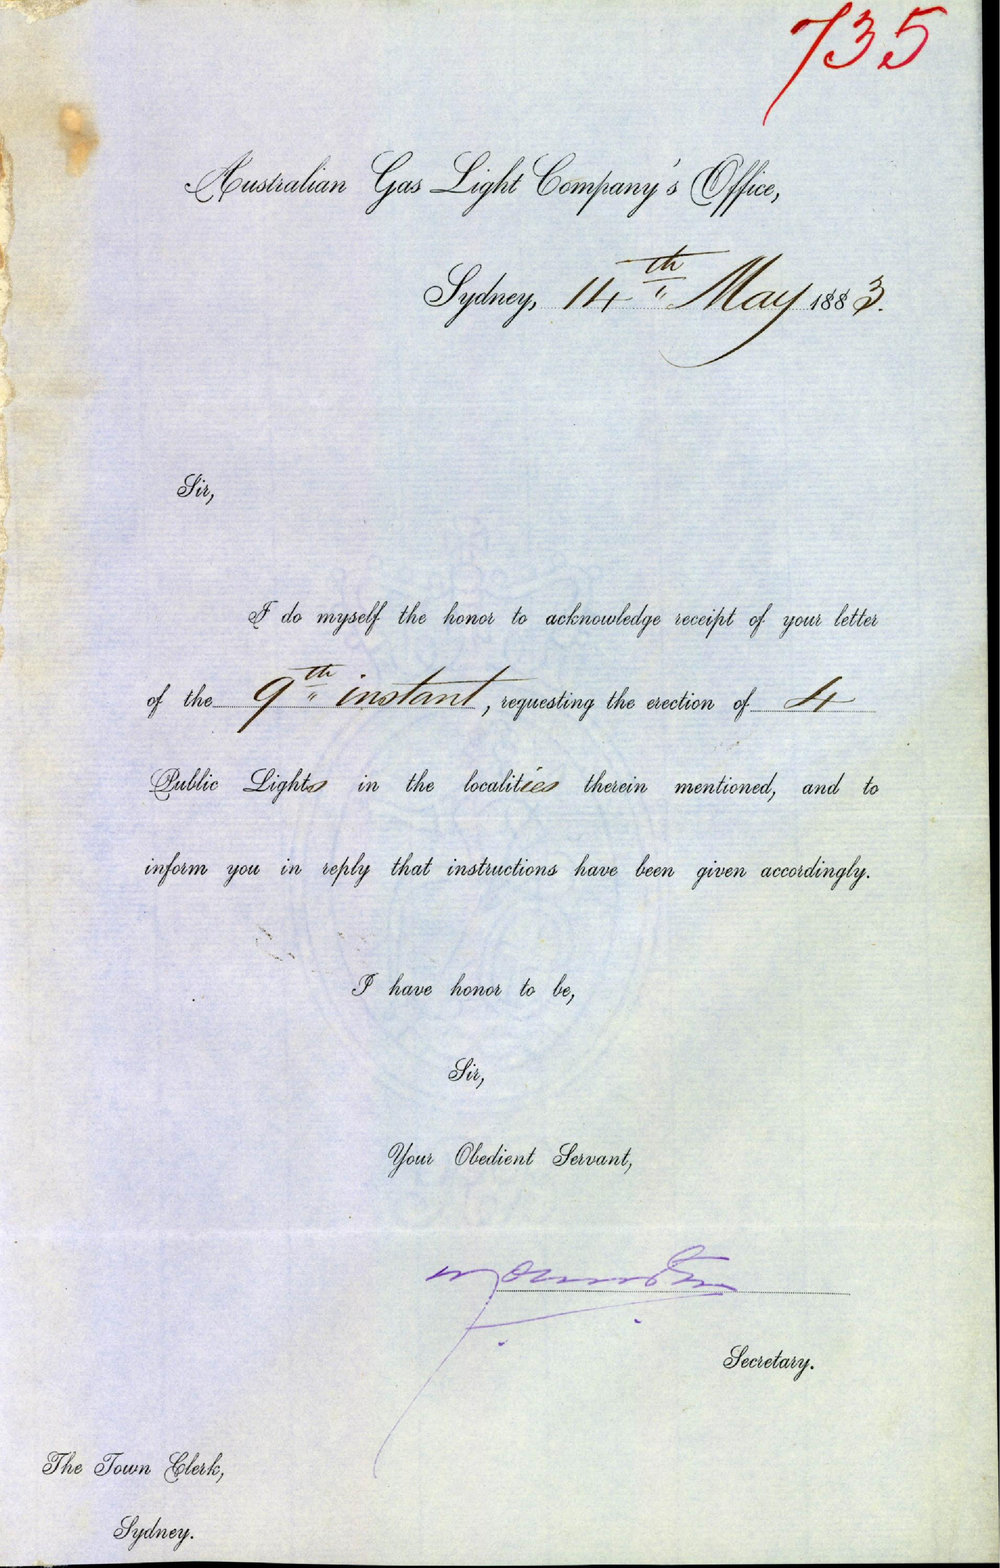 735
Australian Gas Light Company's Office,
Sydney, 14th May 1883.
Sir,
I do myself the honor to acknowledge receipt of your letter
of the 9th instant, requesting the erection of 4
Public Lights in the localities therein mentioned, and to
inform you in reply that instructions have been given accordingly.
I have honor to be,
Sir,
Your Obedient Servant,
Secretary.
The Town Clerk,
Sydney.